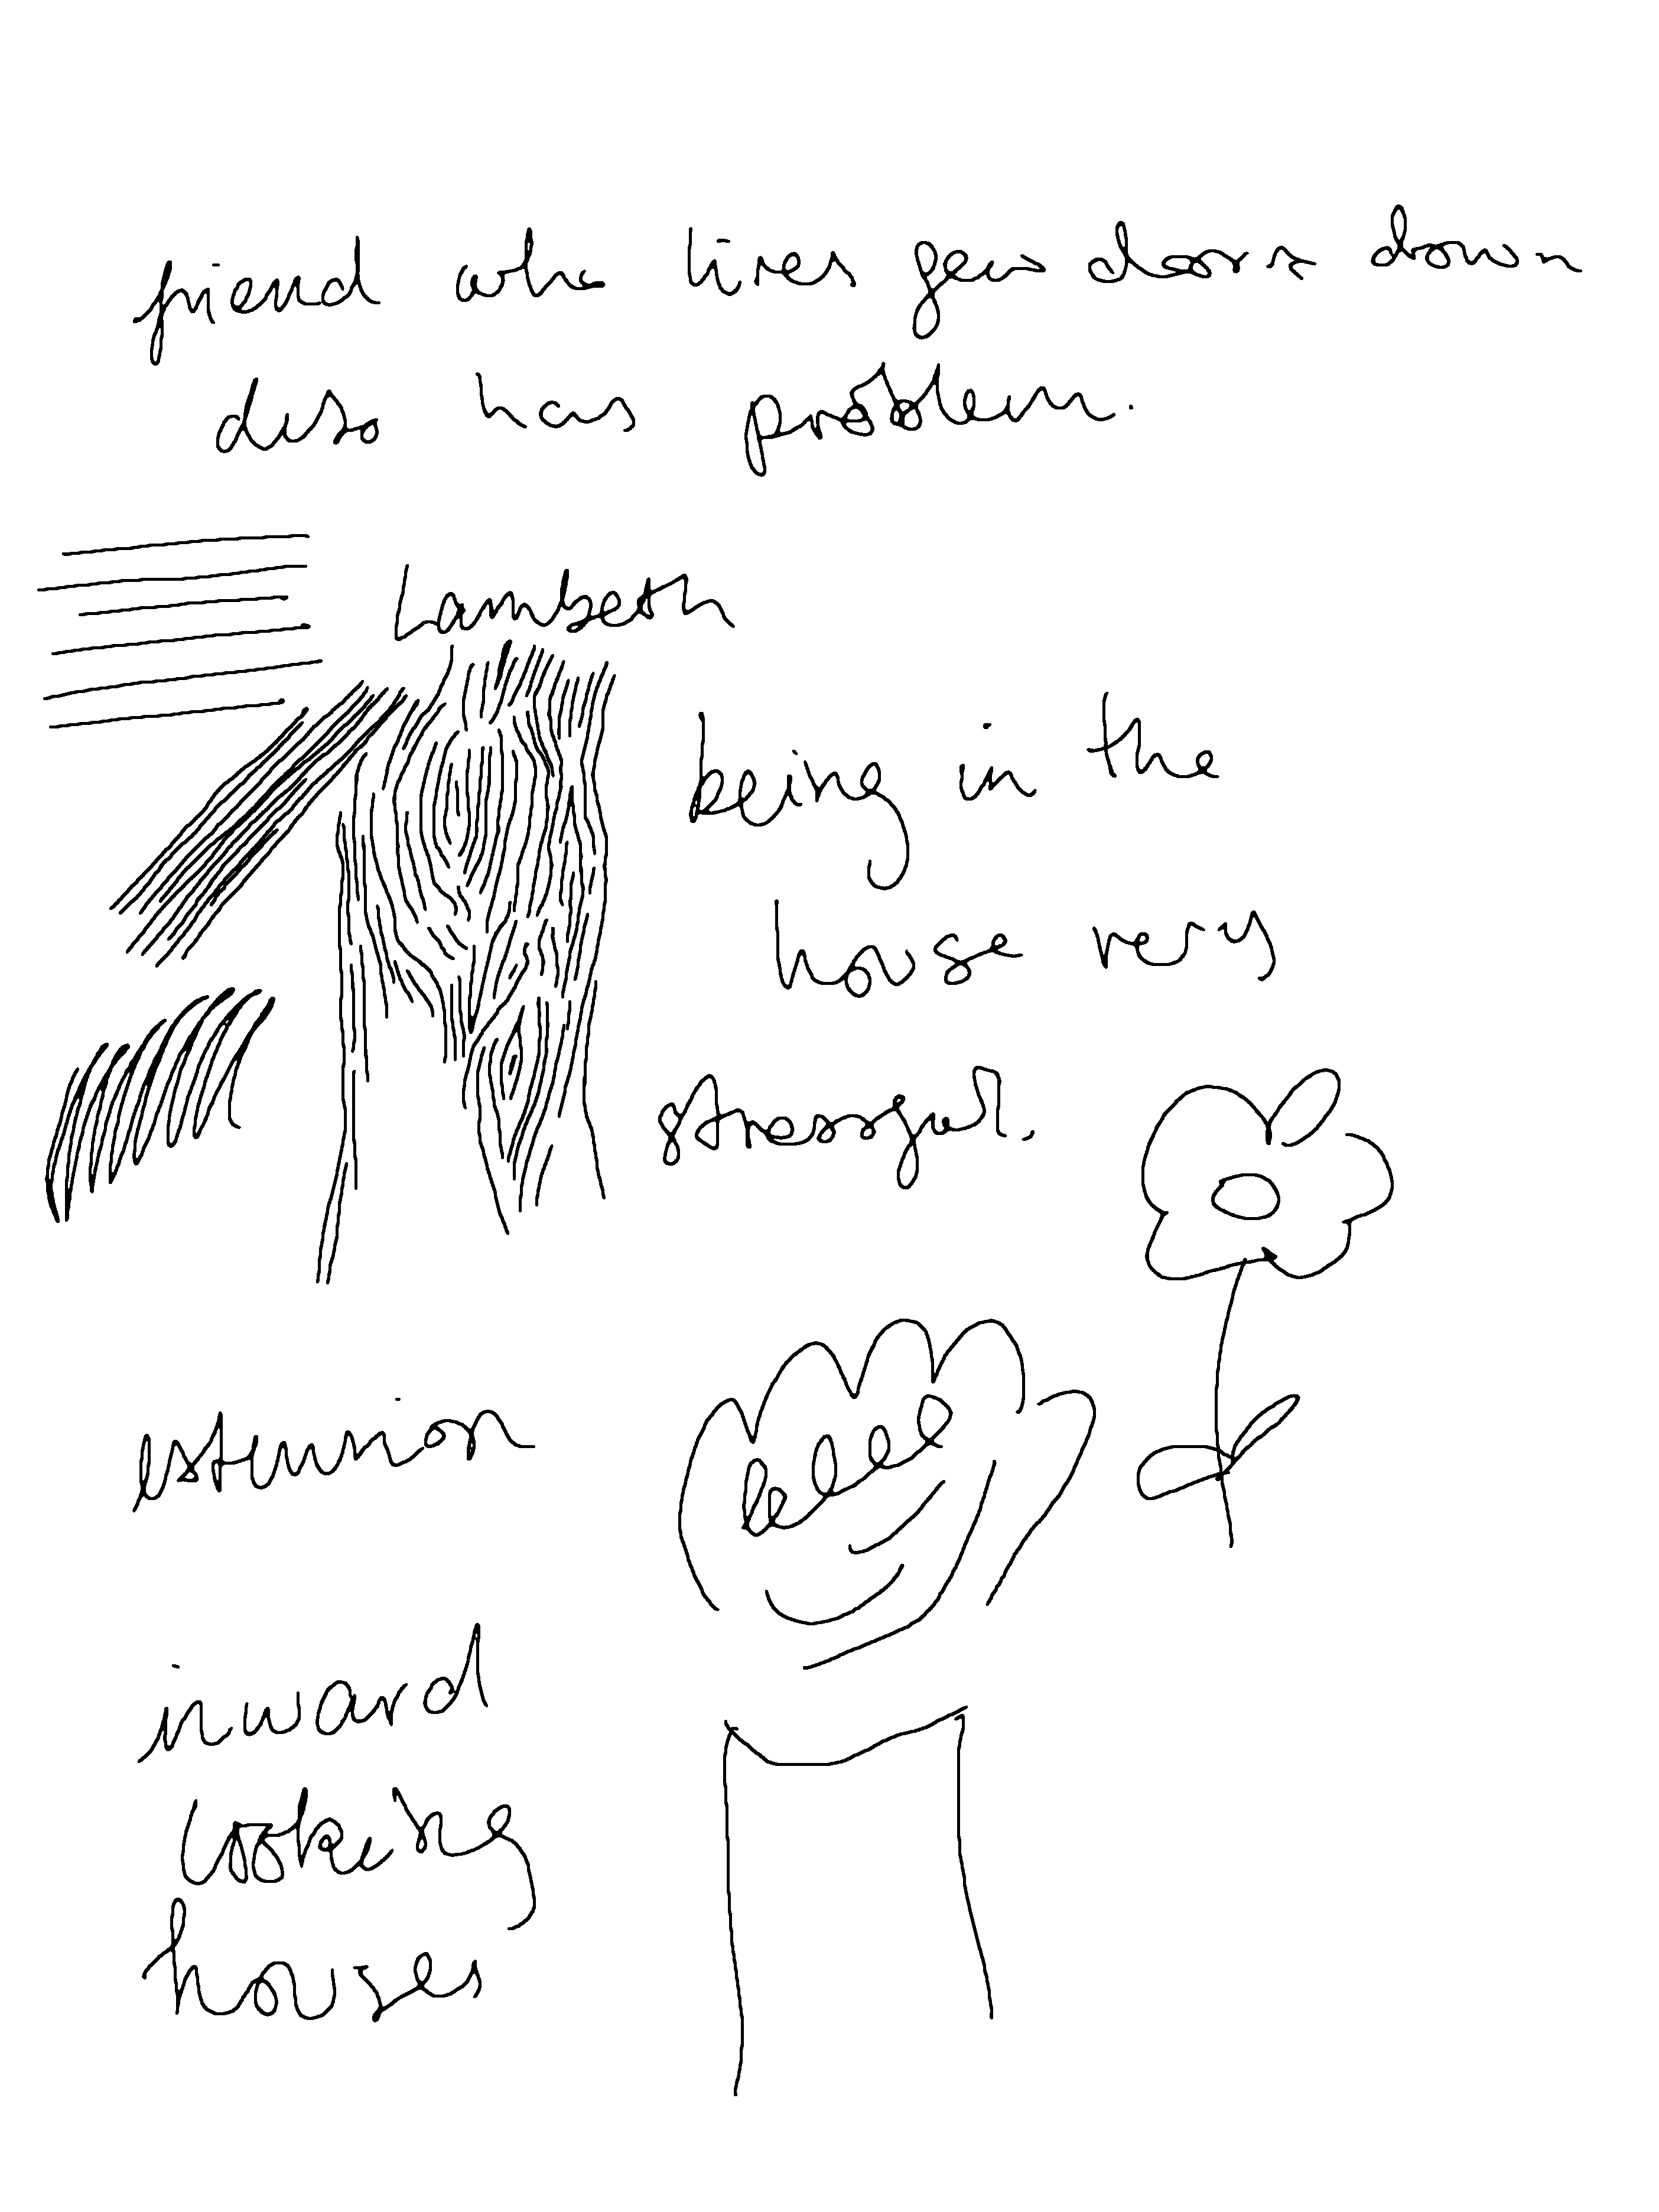 friend who lives few doors down
also has problem.
Lambeth
being in the
house very
stressful.
extension
inward
looking
houses